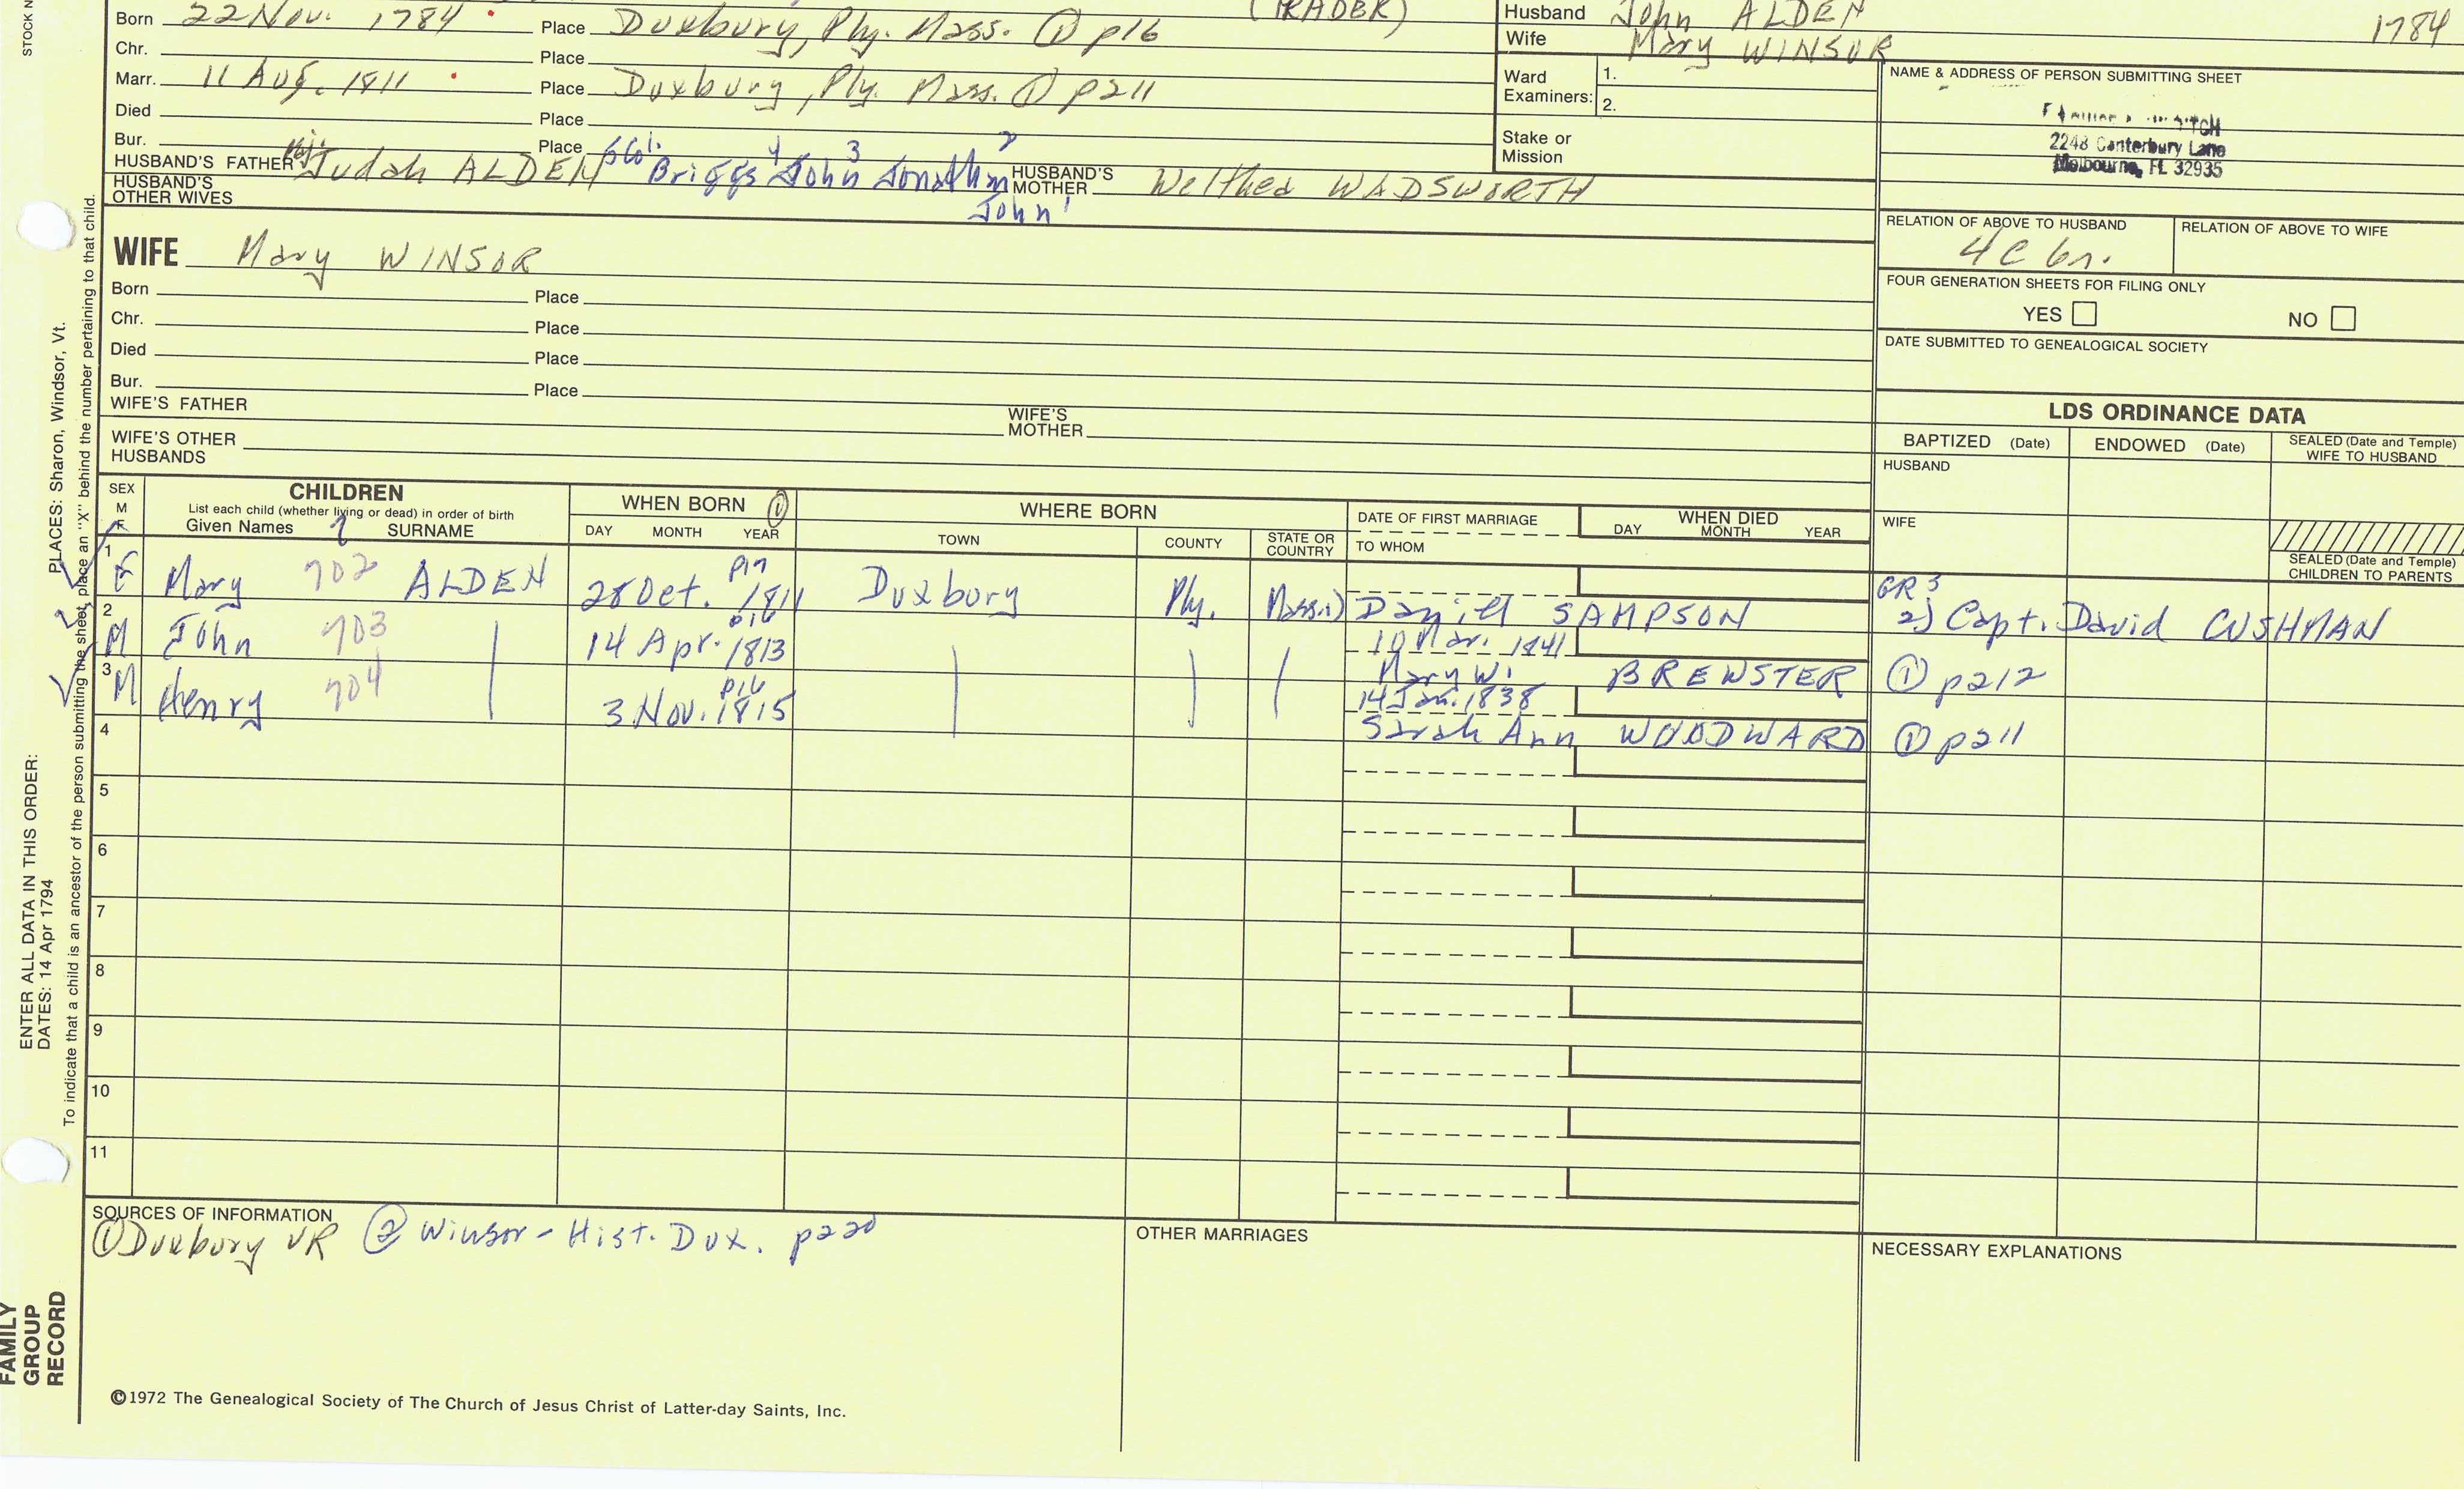 Born 22 Nov. 1784 Place Duxbury, Ply. Mass. ① p16
(TRADER)
Husband John ALDEN 1784
Wife Mary WINSOR
Chr. Place
Marr. 11 Aug. 1811 Place Duxbury, Ply. Mass. ① p211
Died Place
Bur. Place
Ward Examiners: 1.
2.
Stake or Mission
NAME & ADDRESS OF PERSON SUBMITTING SHEET
2248 Canterbury Lane
Melbourne, FL 32935
HUSBAND'S FATHER Judah ALDEN Briggs 4 John 3 Jonathan 2 John 1
HUSBAND'S MOTHER Welthea WADSWORTH
HUSBAND'S OTHER WIVES
RELATION OF ABOVE TO HUSBAND 4C 6r.
RELATION OF ABOVE TO WIFE
WIFE Mary WINSOR
Born Place
Chr. Place
Died Place
Bur. Place
FOUR GENERATION SHEETS FOR FILING ONLY
YES NO
DATE SUBMITTED TO GENEALOGICAL SOCIETY
WIFE'S FATHER WIFE'S MOTHER
WIFE'S OTHER HUSBANDS
LDS ORDINANCE DATA
BAPTIZED (Date) ENDOWED (Date) SEALED (Date and Temple) WIFE TO HUSBAND
HUSBAND
WIFE
SEALED (Date and Temple) CHILDREN TO PARENTS
SEX M F
CHILDREN
List each child (whether living or dead) in order of birth
Given Names SURNAME
WHEN BORN ①
DAY MONTH YEAR
WHERE BORN
TOWN COUNTY STATE OR COUNTRY
DATE OF FIRST MARRIAGE
TO WHOM
WHEN DIED
DAY MONTH YEAR
1 F Mary 702 ALDEN 28 Oct. 1811 Duxbury Ply. Mass. 1) Daniel SAMPSON GR3 2) Capt. David CUSHMAN
2 M John 703 14 Apr. 1813 p16 10 Mar. 1841 Mary W. BREWSTER ① p212
3 M Henry 704 3 Nov. 1815 p16 14 Jan. 1838 Sarah Ann WOODWARD ① p211
4
5
6
7
8
9
10
11
SOURCES OF INFORMATION
① Duxbury VR ② Winsor - Hist. Dux. p220
OTHER MARRIAGES
NECESSARY EXPLANATIONS
©1972 The Genealogical Society of The Church of Jesus Christ of Latter-day Saints, Inc.
STOCK N
ENTER ALL DATA IN THIS ORDER:
DATES: 14 Apr 1794
PLACES: Sharon, Windsor, Vt.
To indicate that a child is an ancestor of the person submitting the sheet, place an "X" behind the number pertaining to that child.
FAMILY
GROUP
RECORD